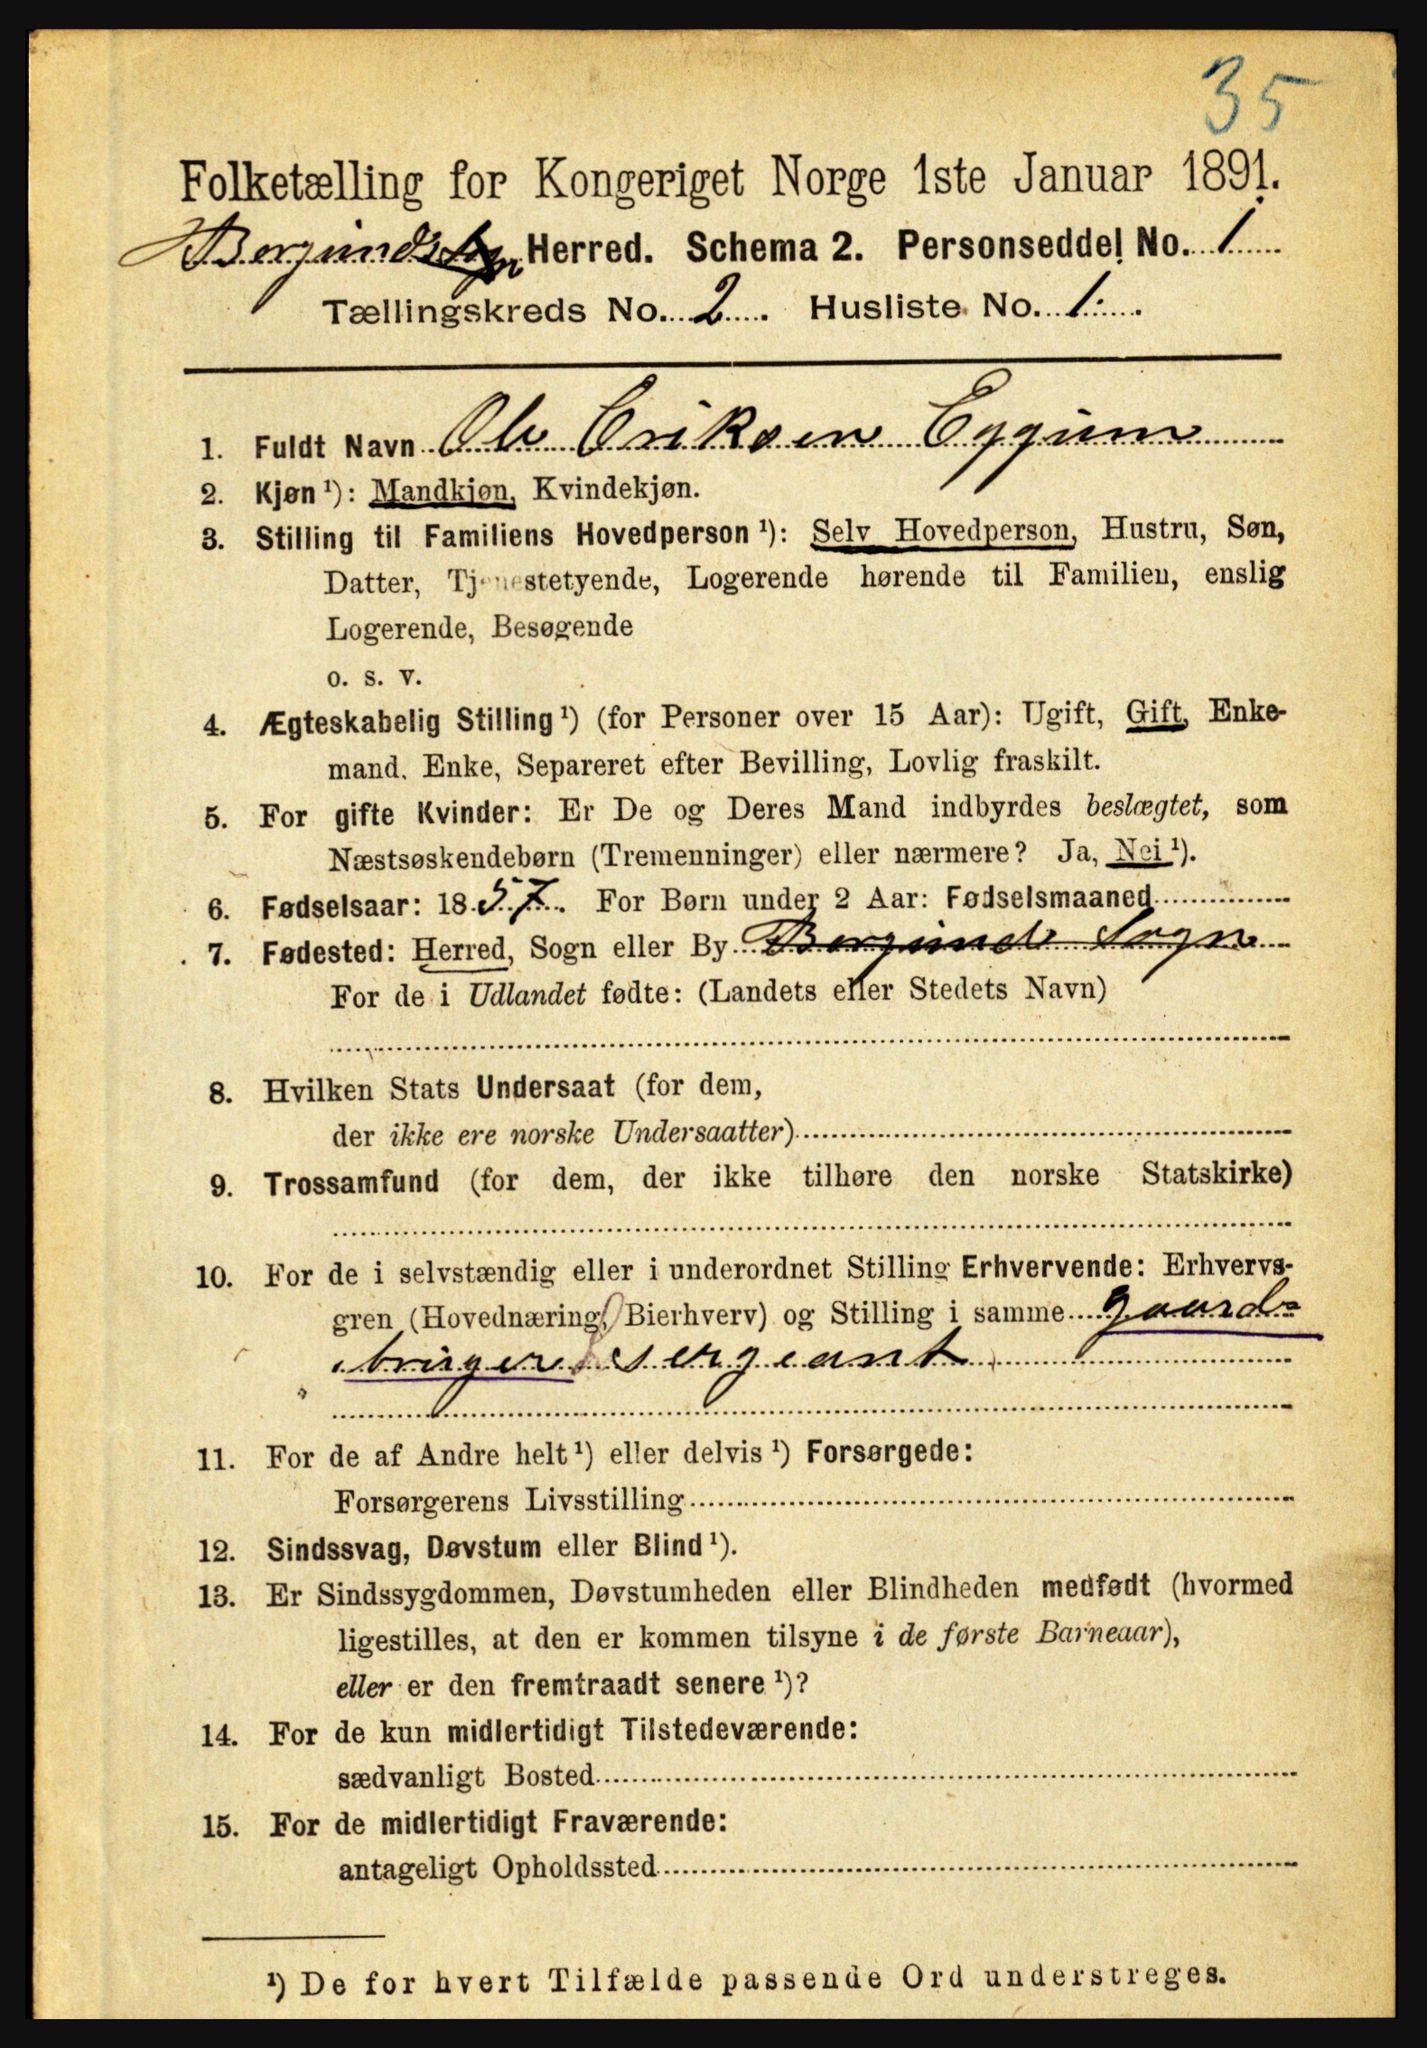 35
Folketælling for Kongeriget Norge 1ste Januar 1891.
Borgunds Herred. Schema 2. Personseddel No. 1
Tællingskreds No. 2. Husliste No. 1.
1. Fuldt Navn Ole Eriksen Eggum
2. Kjøn ¹): Mandkjøn, Kvindekjøn.
3. Stilling til Familiens Hovedperson ¹): Selv Hovedperson, Hustru, Søn,
Datter, Tjenestetyende, Logerende hørende til Familien, enslig
Logerende, Besøgende
o. s. v.
4. Ægteskabelig Stilling ¹) (for Personer over 15 Aar): Ugift, Gift, Enke-
mand, Enke, Separeret efter Bevilling, Lovlig fraskilt.
5. For gifte Kvinder: Er De og Deres Mand indbyrdes beslægtet, som
Næstsøskendebørn (Tremenninger) eller nærmere? Ja, Nei ¹).
6. Fødselsaar: 1857. For Børn under 2 Aar: Fødselsmaaned
7. Fødested: Herred, Sogn eller By Borgund Sogn
For de i Udlandet fødte: (Landets eller Stedets Navn)
8. Hvilken Stats Undersaat (for dem,
der ikke ere norske Undersaatter)
9. Trossamfund (for dem, der ikke tilhøre den norske Statskirke)
10. For de i selvstændig eller i underordnet Stilling Erhvervende: Erhvervs-
gren (Hovednæring, Bierhverv) og Stilling i samme gaard-
bruger sergeant
11. For de af Andre helt ¹) eller delvis ¹) Forsørgede:
Forsørgerens Livsstilling
12. Sindssvag, Døvstum eller Blind ¹).
13. Er Sindssygdommen, Døvstumheden eller Blindheden medfødt (hvormed
ligestilles, at den er kommen tilsyne i de første Barneaar),
eller er den fremtraadt senere ¹)?
14. For de kun midlertidigt Tilstedeværende:
sædvanligt Bosted
15. For de midlertidigt Fraværende:
antageligt Opholdssted
¹) De for hvert Tilfælde passende Ord understreges.